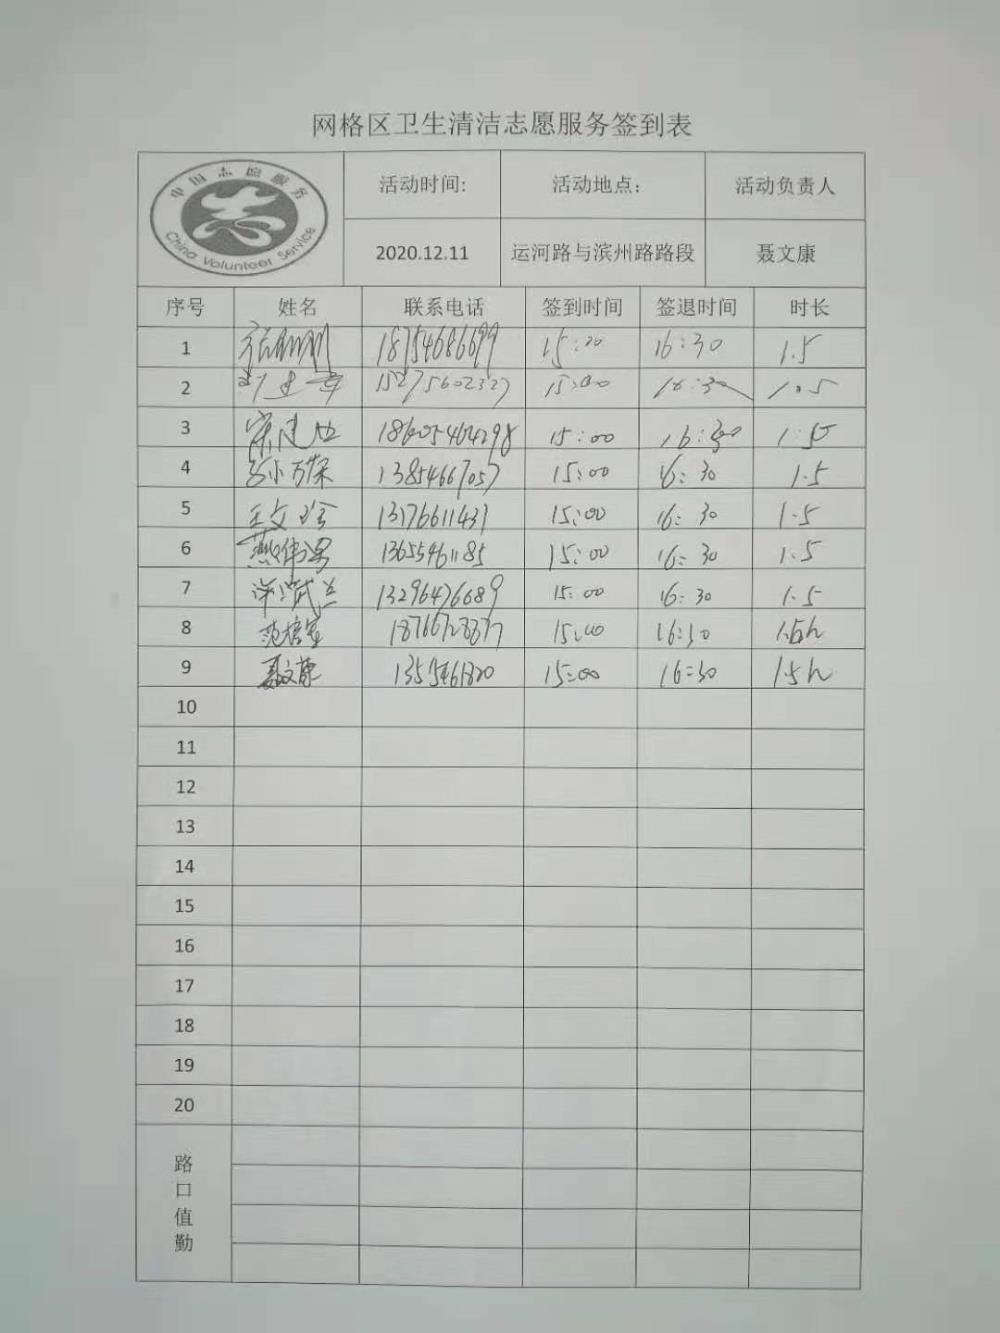 网格区卫生清洁志愿服务签到表
中国志愿服务
China Volunteer Service
活动时间: 活动地点: 活动负责人
2020.12.11 运河路与滨州路路段 聂文康
序号 姓名 联系电话 签到时间 签退时间 时长
1 18754686699 16:30 1.5
2 15275602327 15:00 16:30 1.5
3 15:00 16:30 1.5
4 孙万荣 13854667057 15:00 16:30 1.5
5 王文珍 13176611431 15:00 16:30 1.5
6 燕伟 13655461185 15:00 16:30 1.5
7 13296476689 15:00 16:30 1.5
8 15:00 16:30 1.5h
9 聂文康 15:00 16:30 1.5h
10
11
12
13
14
15
16
17
18
19
20
路
口
值
勤